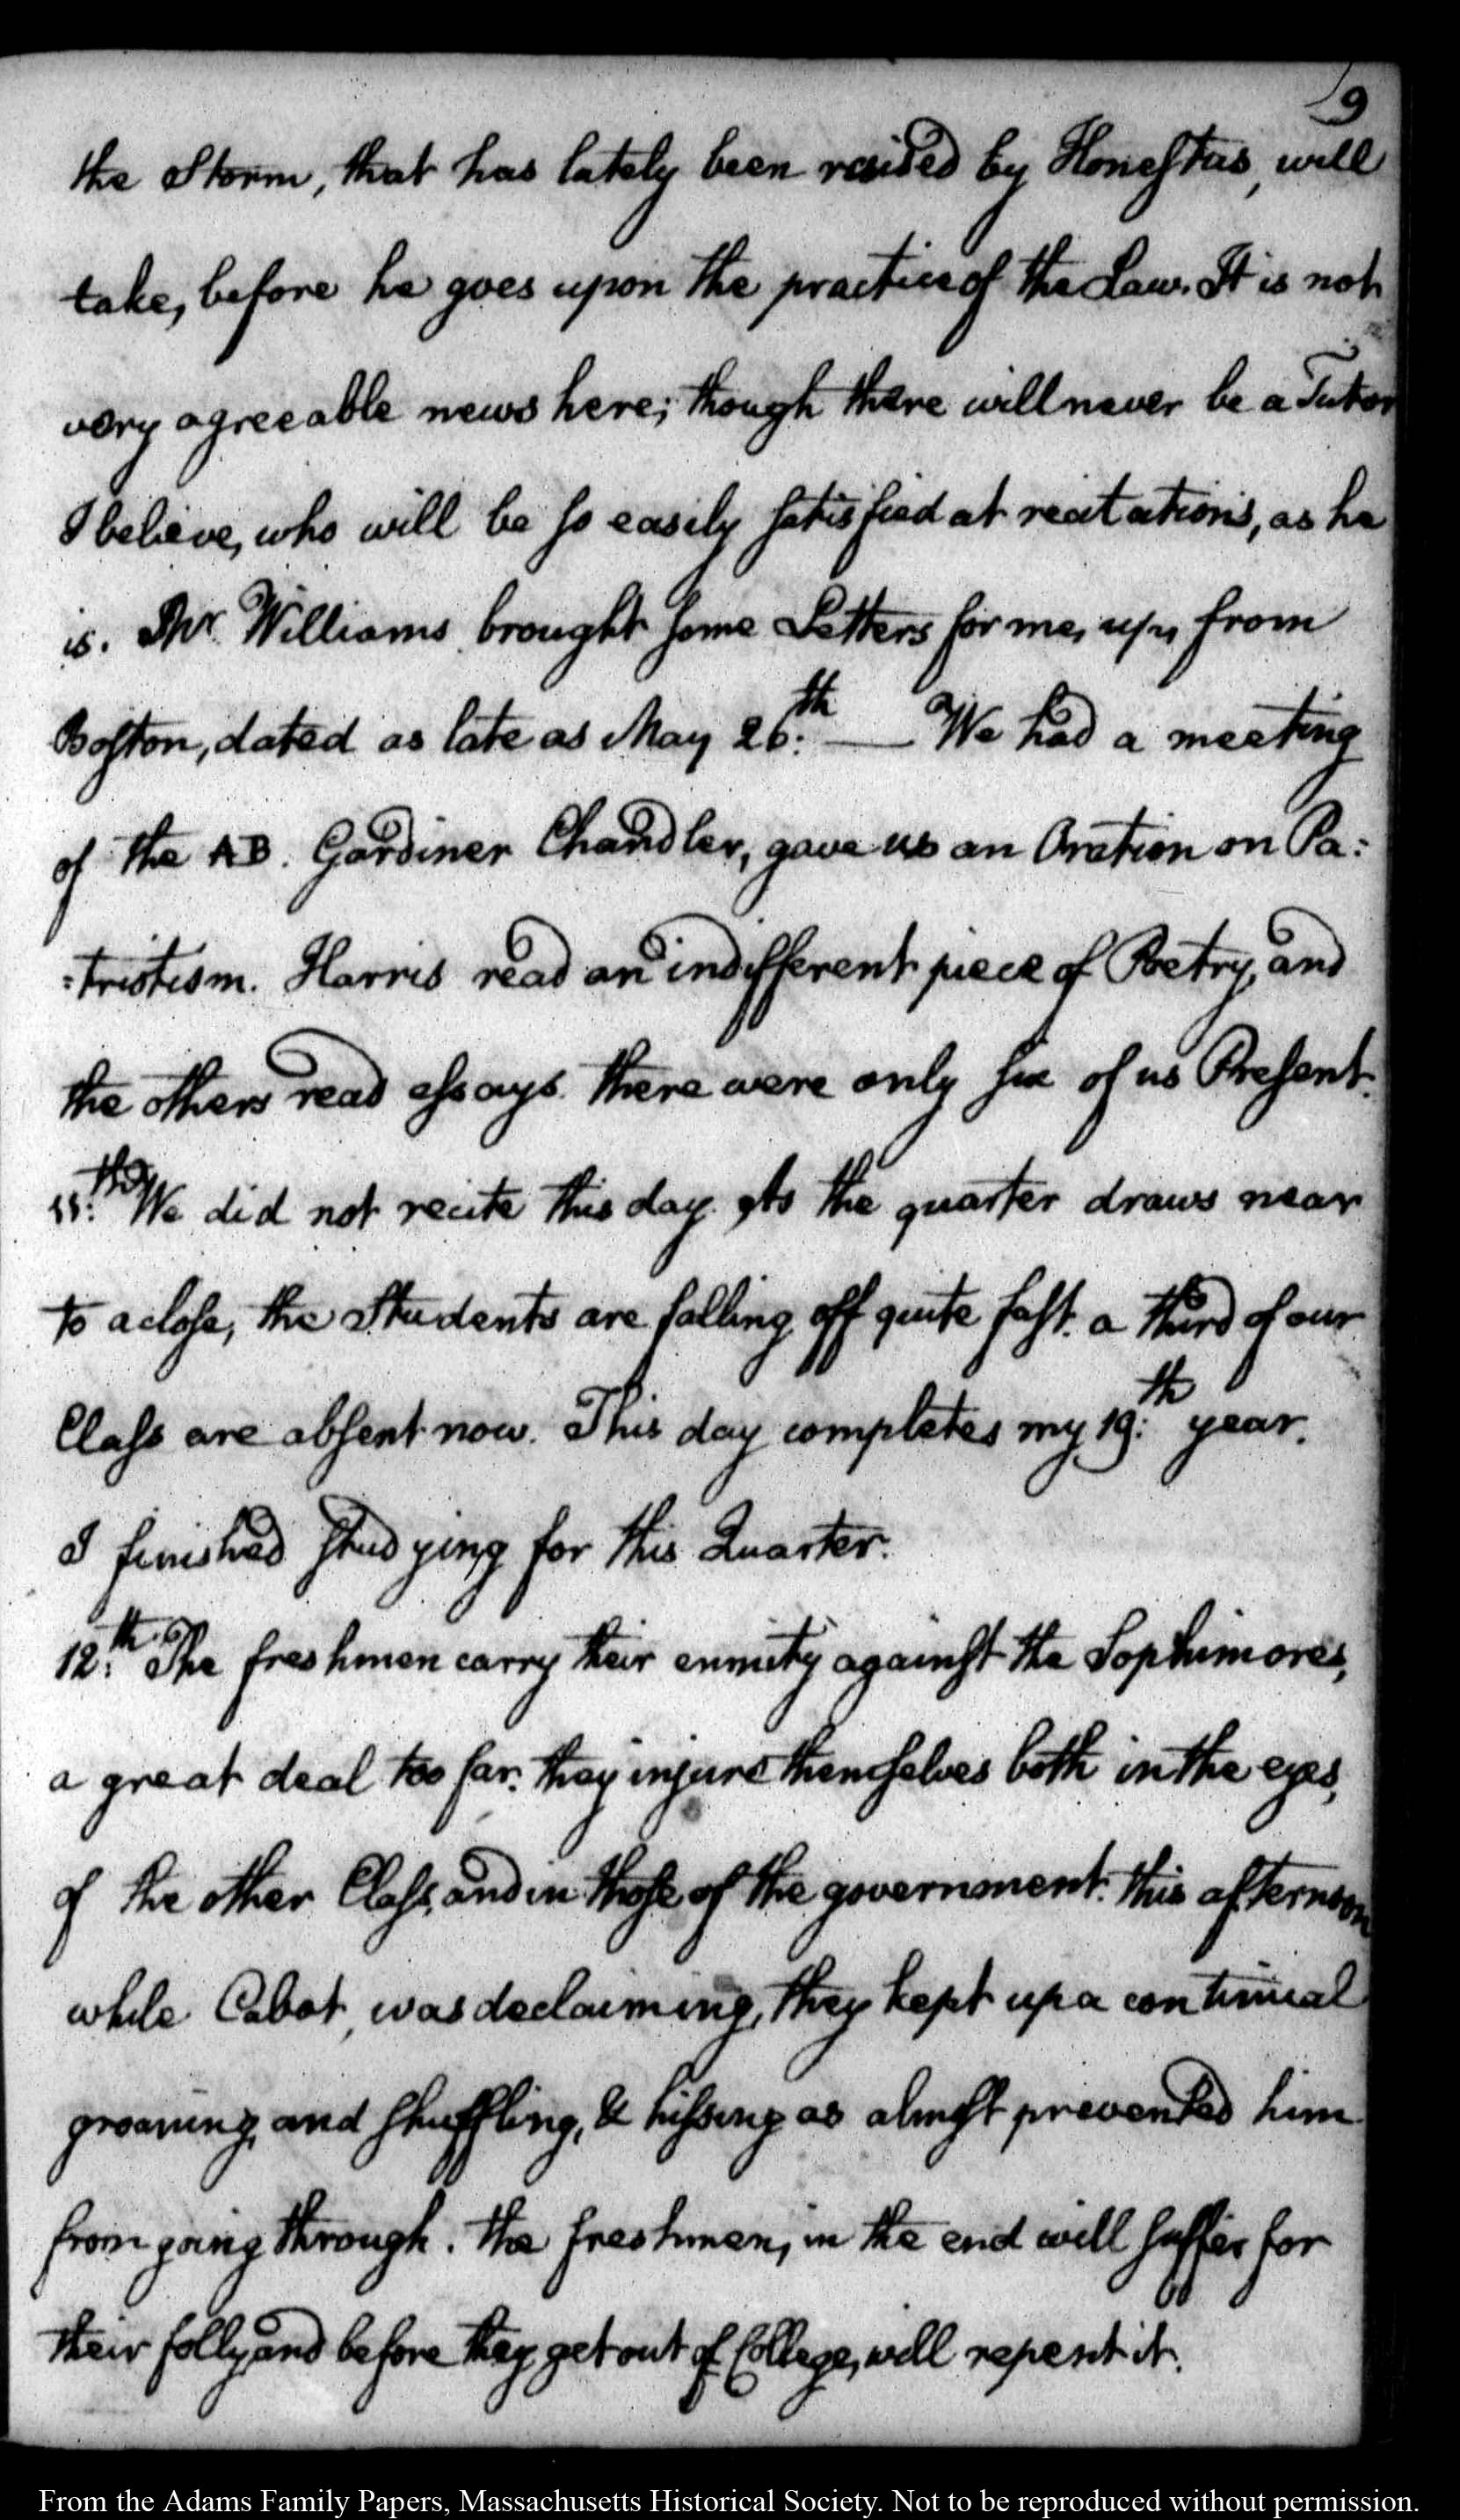 9
the Storm, that has lately been raised by Honestus, will
take, before he goes upon the practice of the Law. It is not
very agreeable news here; though there will never be a Tutor
I believe, who will be so easily satisfied at recitations, as he
is. Mr. Williams brought some Letters for me, up, from
Boston, dated as late as May 26:th — We had a meeting
of the AB. Gardiner Chandler, gave us an Oration on Pa:
:triotism. Harris read an indifferent piece of Poetry, and
the others read essays. there were only six of us Present.
11:th We did not recite this day. As the quarter draws near
to a close, the Students are falling off quite fast. a third of our
Class are absent now. This day completes my 19:th year.
I finished studying for this Quarter.
12:th The freshmen carry their enmity against the Sophimores,
a great deal too far. they injure themselves both in the eyes,
of the other Class, and in those of the government. this afternoon
while Cabot, was declaiming, they kept up a continual
groaning, and shuffling, & hissing as almost prevented him
from going through. the freshmen, in the end will suffer for
their folly, and before they get out of College, will repent it.
From the Adams Family Papers, Massachusetts Historical Society. Not to be reproduced without permission.